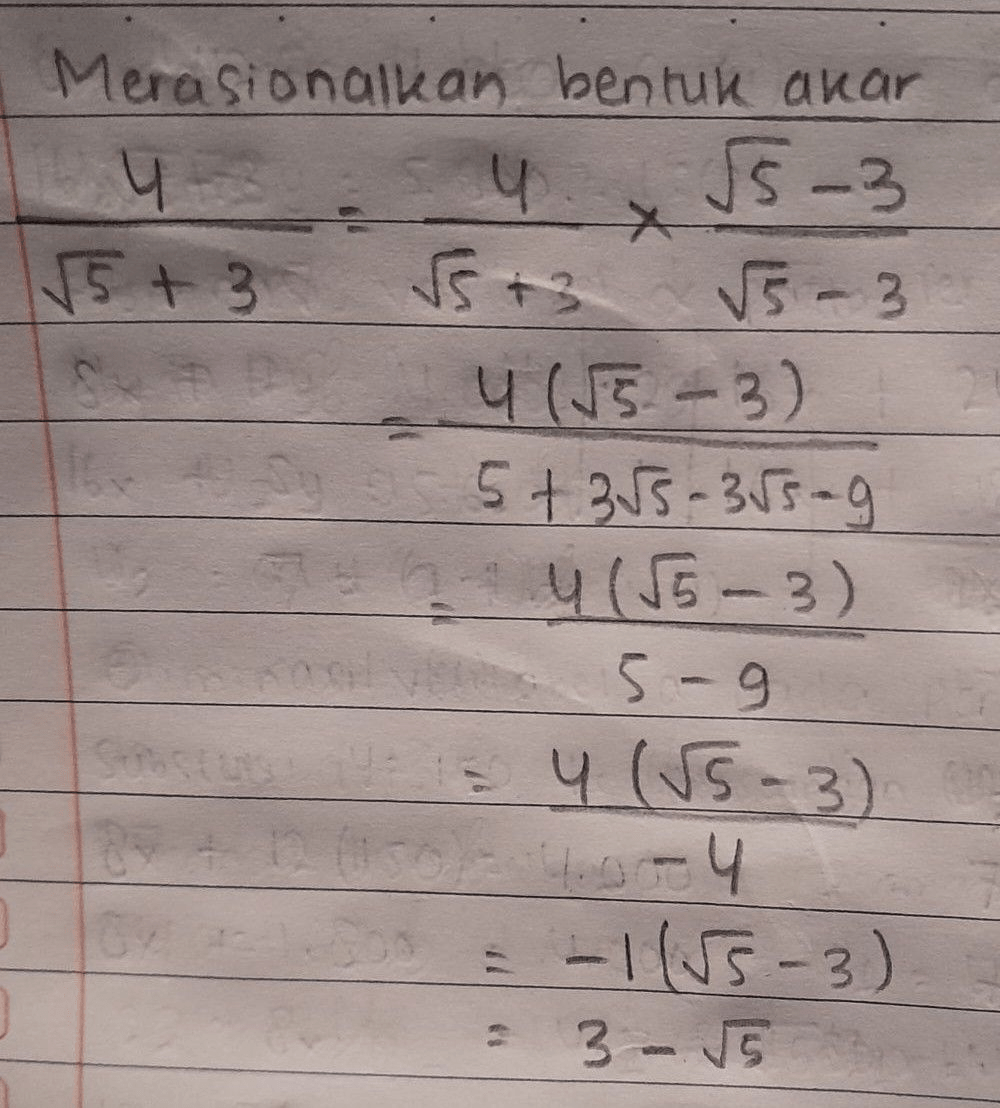 Merasionalkan bentuk akar
4/(√5 + 3) = 4/(√5 + 3) × (√5 - 3)/(√5 - 3)
= 4(√5 - 3)/(5 + 3√5 - 3√5 - 9)
= 4(√5 - 3)/(5 - 9)
= 4(√5 - 3)/(-4)
= -1(√5 - 3)
= 3 - √5